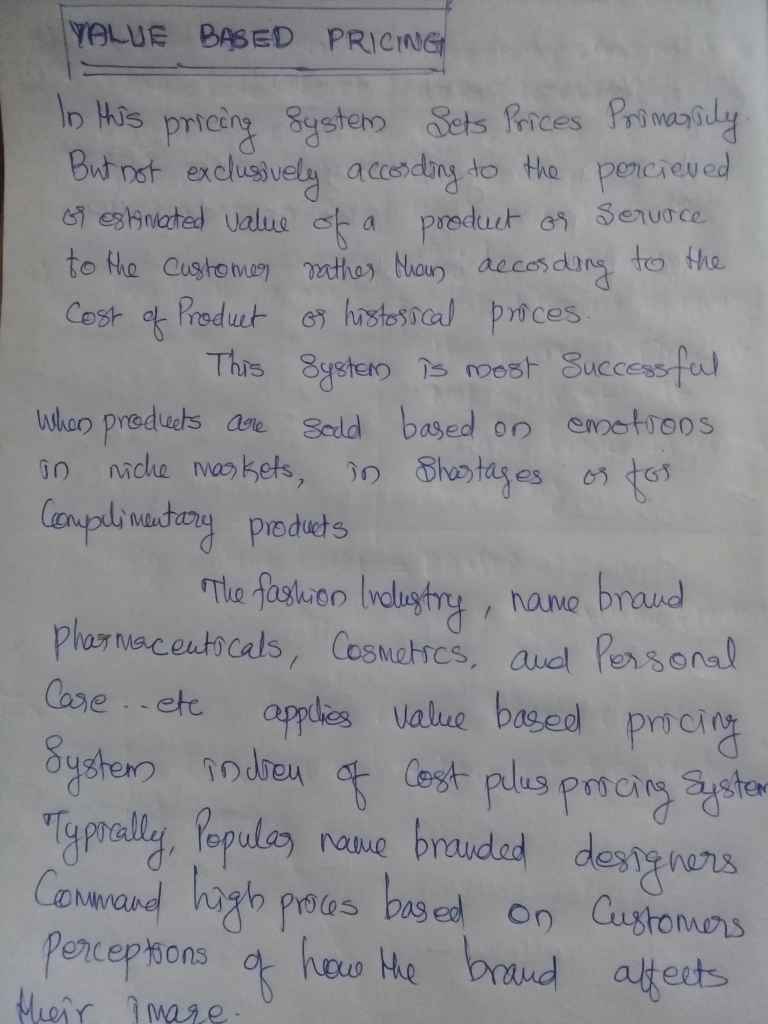 VALUE BASED PRICING
In this pricing System Sets Prices Primarily.
But not exclusively according to the percieved
or estimated value of a product or Service
to the customer rather than according to the
Cost of Product or historical prices.
This System is most Successful
when products are sold based on emotions
in niche markets, in Shortages or for
Complimentary products
The fashion Industry, name brand
pharmaceuticals, Cosmetics, and Personal
Care...etc applies value based pricing
System inlieu of Cost plus pricing System
Typically, Popular name branded designers
Command high prices based on Customers
perceptions of how the brand affects
their image.